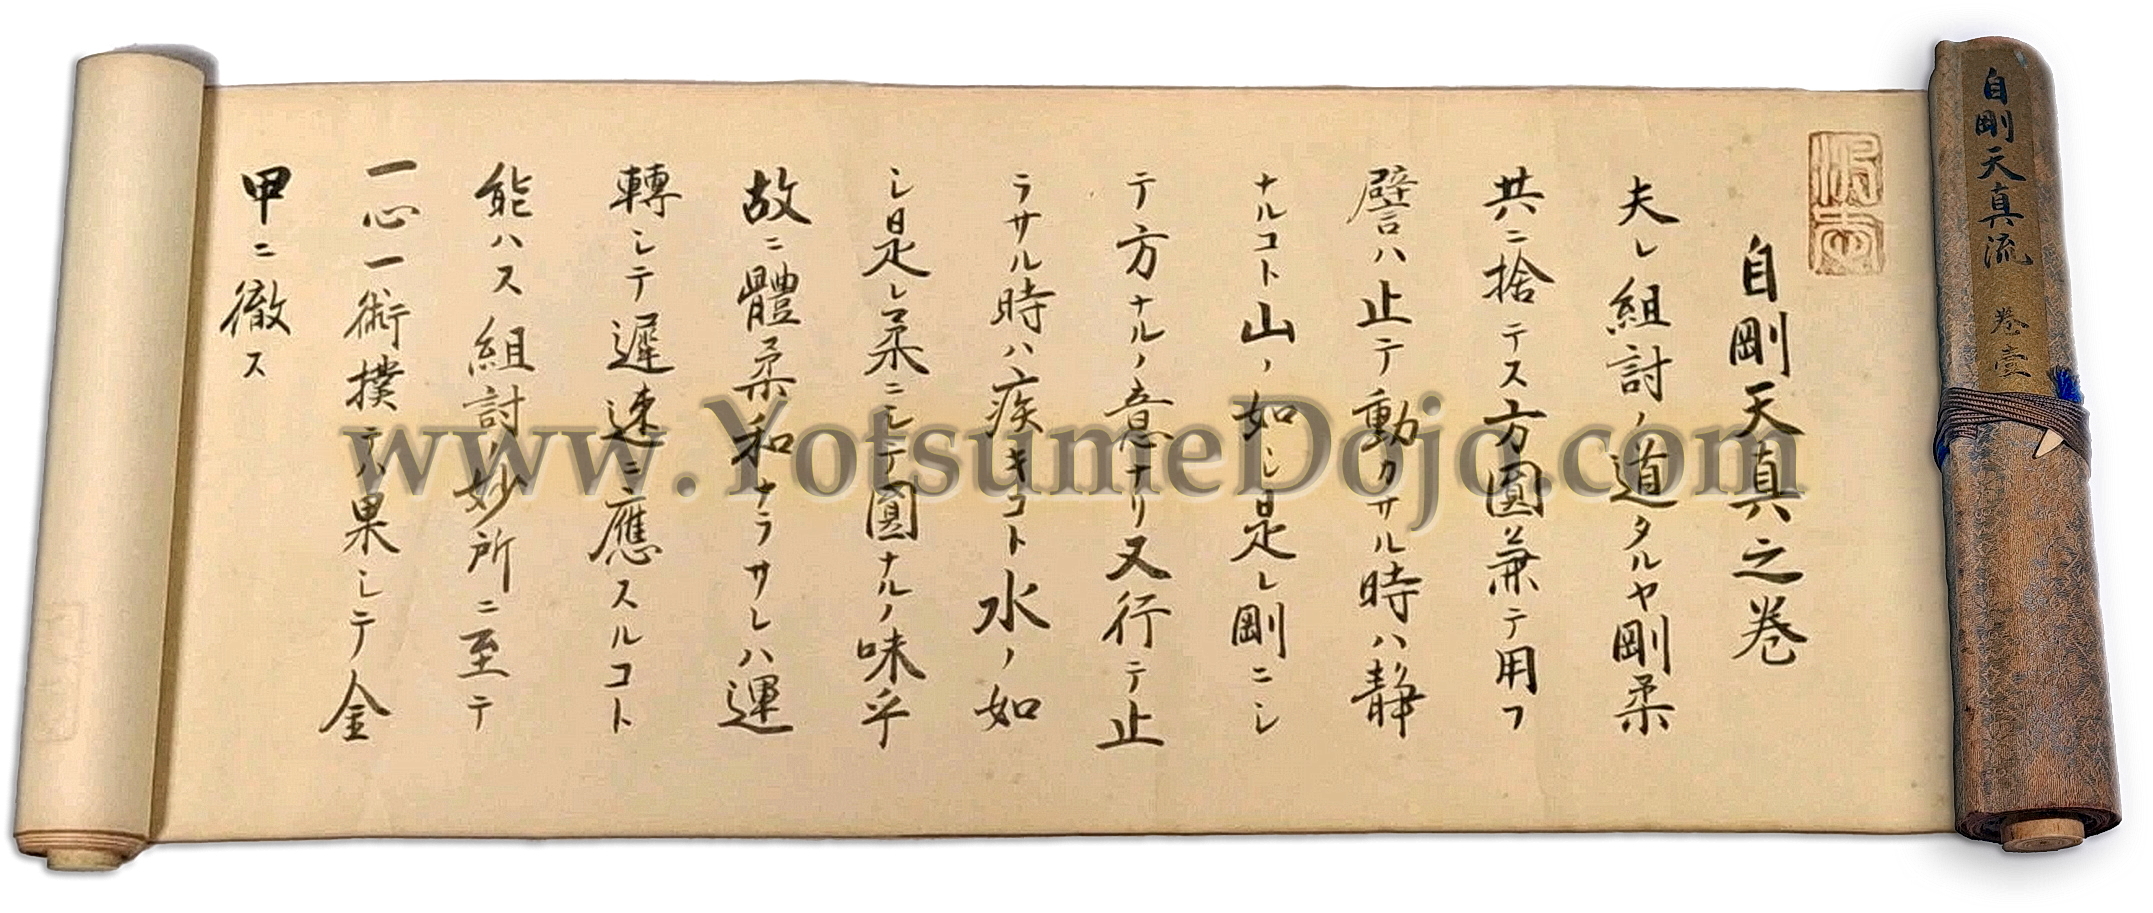 自剛天真流 巻壹
自剛天真之巻
夫レ組討ノ道タルヤ剛柔
共ニ捨テス方圓兼テ用フ
譬ハ止テ動カサル時ハ静
ナルコト山ノ如シ是レ剛ニシ
テ方ナルノ意ナリ又行テ止
ラサル時ハ疾キコト水ノ如
シ是レ柔ニシテ圓ナルノ味乎
故ニ體柔和ナラサレハ運
轉シテ遲速ニ應スルコト
能ハス組討ノ妙所ニ至テ
一心一術撲テハ果シテ金
甲ニ徹ス
www.YotsumeDojo.com